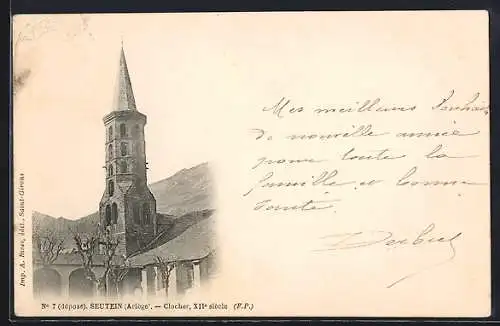 Mes meilleurs Souhaits
de nouvelle année
pour toute la
famille et bonne
Santé
Imp. A. Rives, édit., Saint-Girons
Nº 7 (déposé). SEUTEIN (Ariège). — Clocher, XIIe siècle (F.P.)